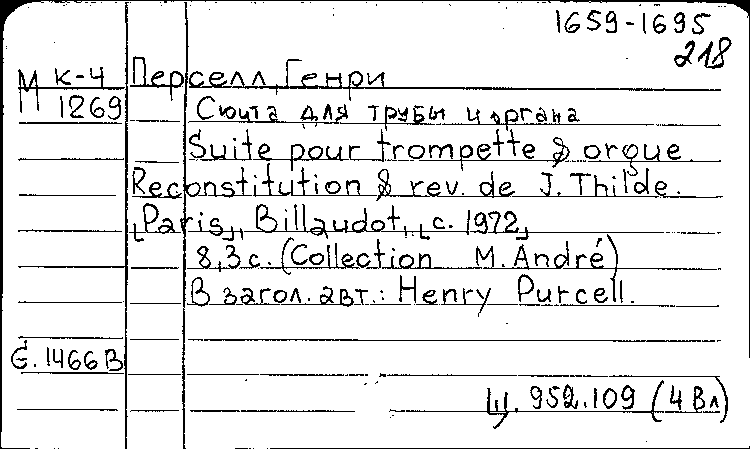 1659-1695
218
М К-4 Перселл, Генри
П 1269 Сюита для трубы и органа
Suite pour trompette & orgue.
Reconstitution & rev. de J. Thilde.
[Paris], Billaudot, [c. 1972]
8,3 с. (Collection M. André)
В загол. авт.: Henry Purcell.
Є. 1466 В
Ц. 952.109 (4 Вл)